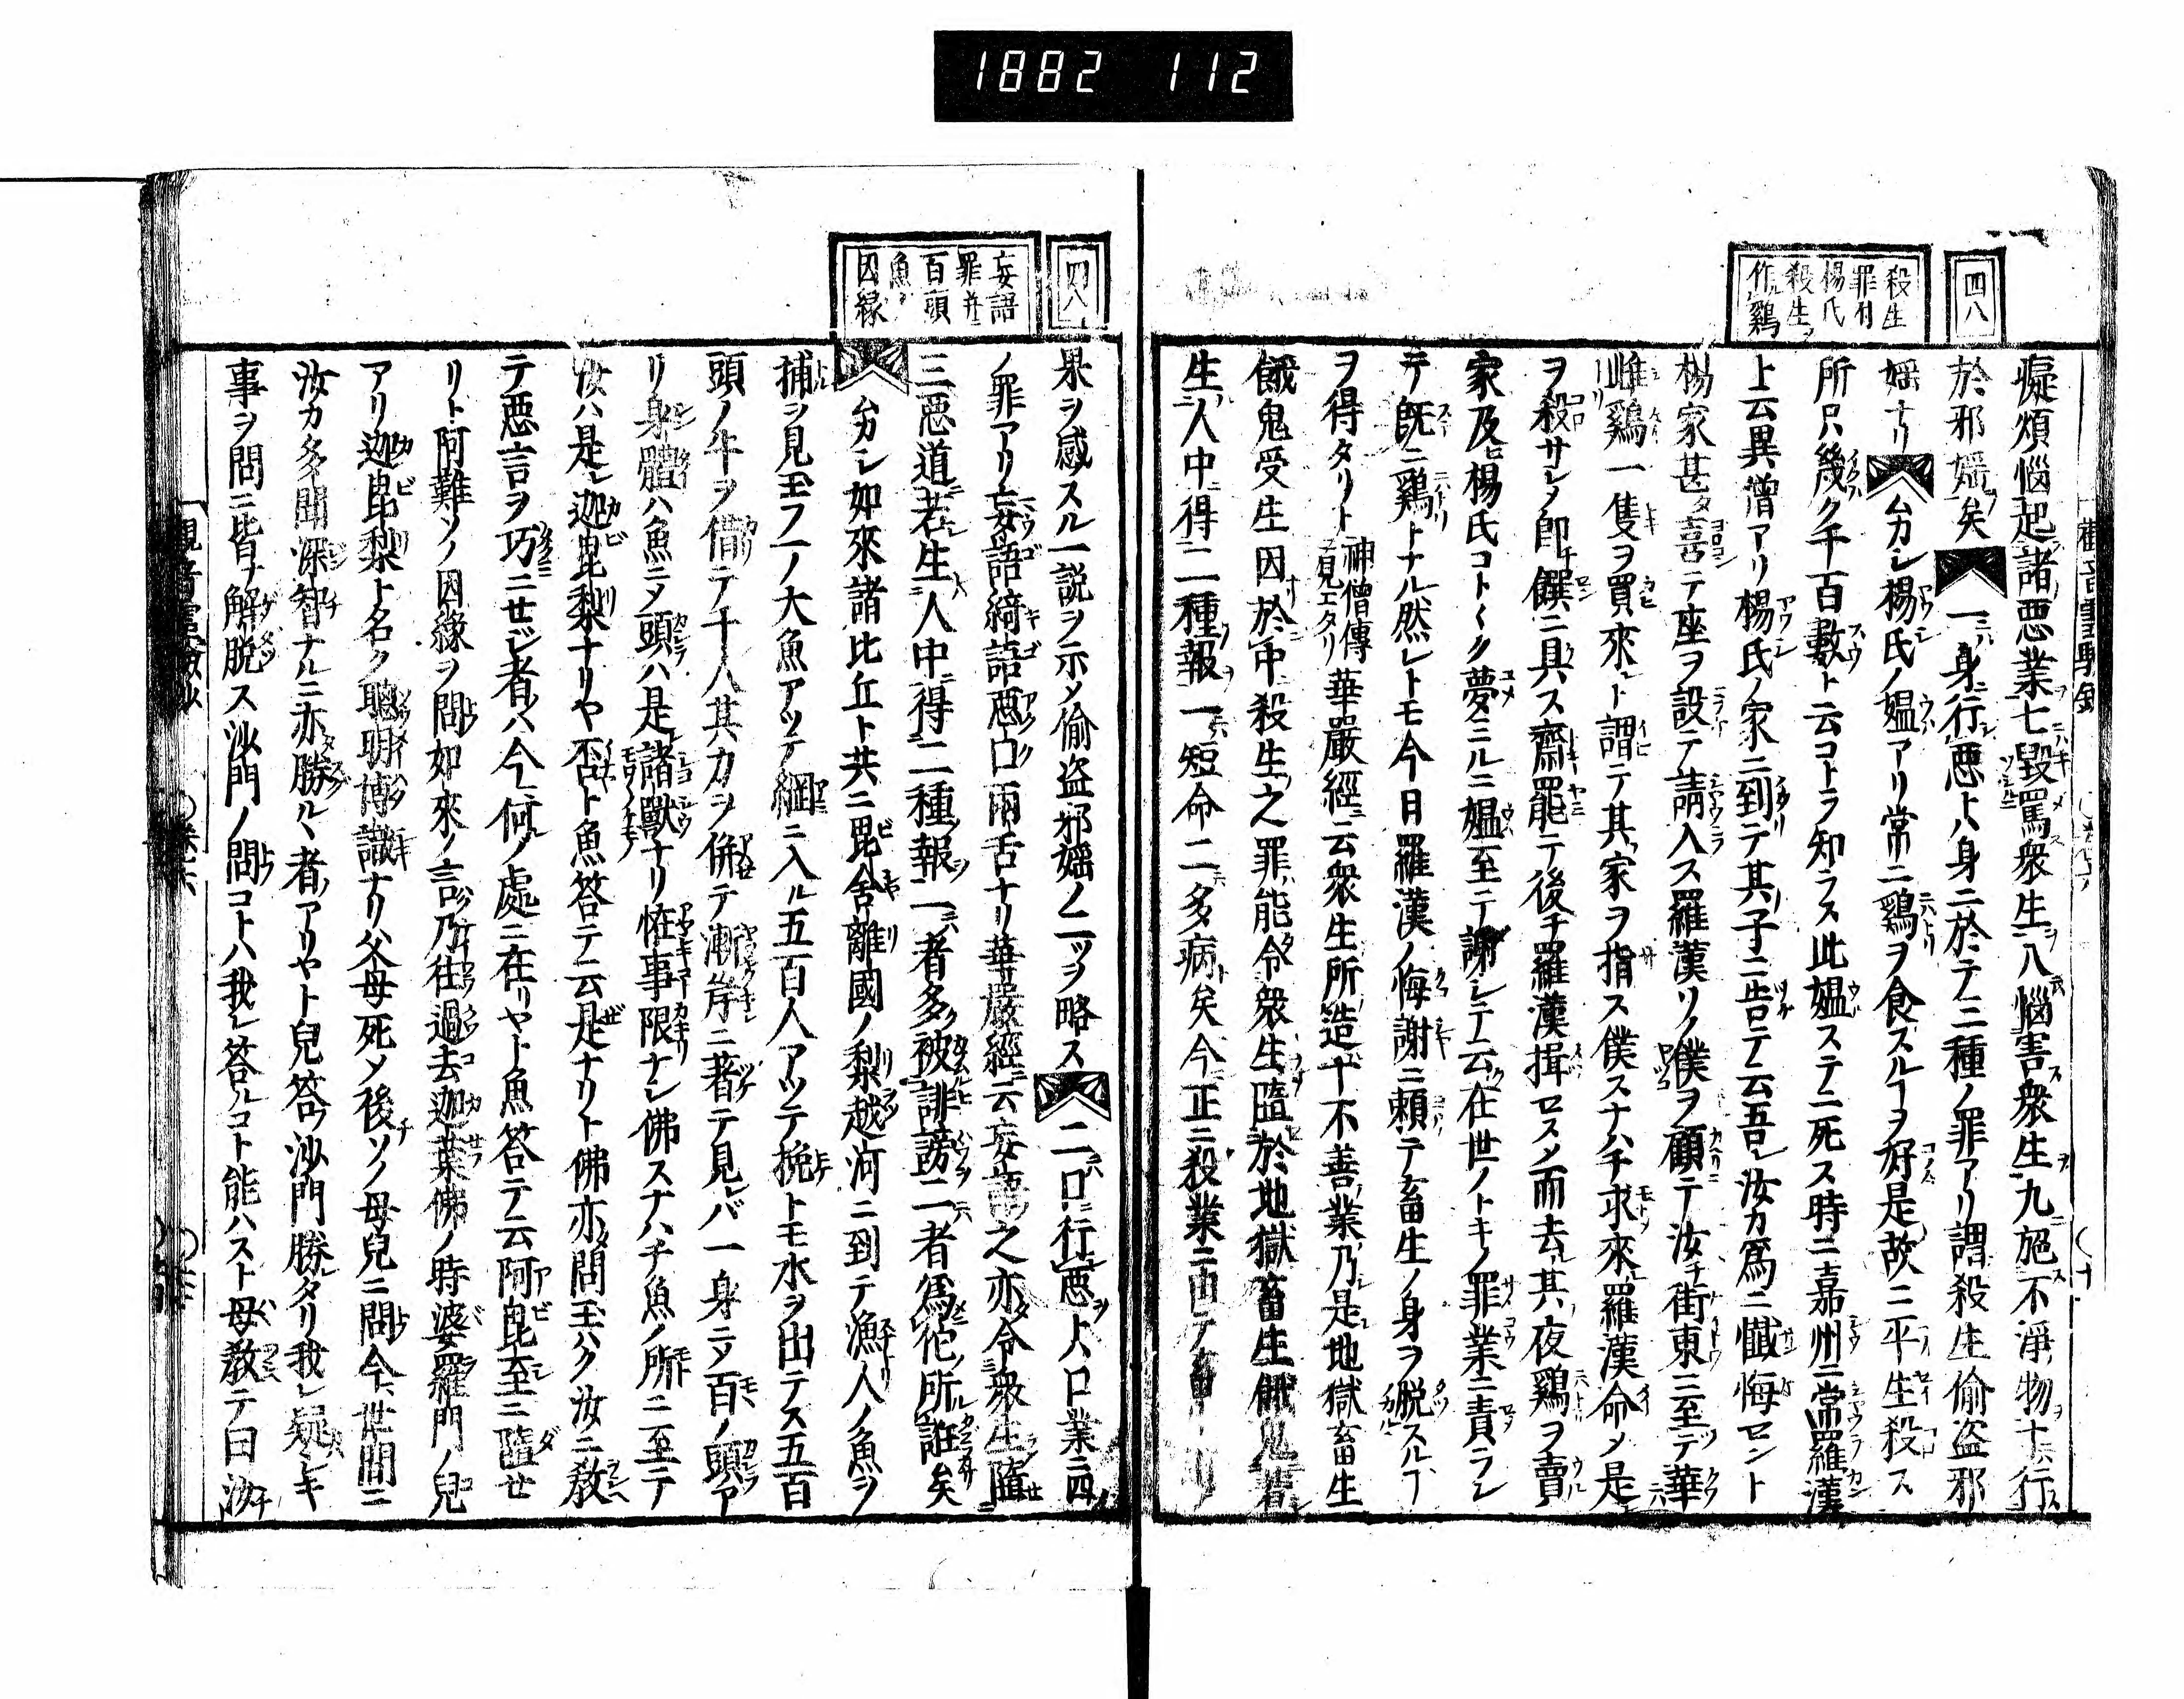 1882 112
四八
殺生
罪付
楊氏
殺生ノ
作鷄
癡煩惱起諸惡業七毀罵衆生八惱害衆生九絁不淨物十行
於邪婬矣一身行惡トハ身ニ於テ三種ノ罪アリ謂殺生偸盗邪
婬ナリムカシ楊氏ノ媼アリ常ニ鷄ヲ食スルヿヲ好是故ニ平生殺ス
所只幾ク千百數ト云コトヲ知ラス此媼ステニ死ス時ニ嘉州ニ常羅漢
ト云異僧アリ楊氏ノ家ニ到テ其子ニ告テ云吾レ汝カ爲ニ懺悔セント
楊家甚タ喜テ座ヲ設テ請入ス羅漢ソノ僕ヲ顧テ汝チ街東ニ至テ
雌鷄一隻ヲ買來レト謂テ其家ヲ指ス僕スナハチ求來羅漢命メ是
ヲ殺サシメ即饌ニ具ス齋罷テ後チ羅漢揖セスメ而去其夜鷄ヲ賣
家及ヒ楊氏コト〱ク夢ミルニ媼至テ謝シテ云在世ノトキノ罪業ニ責ラレ
テ既ニ鷄トナル然レトモ今日羅漢ノ悔謝ニ頼テ畜生ノ身ヲ脱スルヿ
ヲ得タリト神僧傳見エタリ華嚴經云衆生所造十不善業乃是地獄畜生
餓鬼受生因於中殺生之罪能令衆生墮於地獄畜生餓鬼若
生人中得二種報一短命二多病矣今正ニ殺業ニ由テ
四八
妄語
罪并ニ
百頭
魚ノ
因縁
果ヲ感スル一説ヲ示メ偸盗邪婬ノ二ツヲ略ス二口行惡トハ口業ニ四
ノ罪アリ妄語綺語惡口兩舌ナリ華嚴經云妄語之亦令衆生墮
三惡道若生人中得二種報一者多被誹謗二者爲佗所誑矣
ムカシ如來諸比丘ト共ニ毘舍離國ノ梨越河ニ到テ漁人ノ魚ヲ
捕ヲ見玉フ一ノ大魚アツテ網ニ入ル五百人アツテ挽トモ水ヲ出テス五百
頭ノ牛ヲ借テ千人其力ヲ併テ漸岸ニ著テ見レバ一身ニメ百ノ頭ア
リ身體ハ魚ニメ頭ハ是諸獸ナリ恠事限ナシ佛スナハチ魚ノ所ニ至テ
汝ハ是レ迦毘梨ナリヤ否ト魚答テ云是ナリト佛亦問玉ハク汝ニ教
テ惡言ヲ巧ニセシ者ハ今何ノ處ニ在リヤト魚答テ云阿毘至ニ墮セ
リト阿難ソノ因縁ヲ問如來ノ言乃往過去迦葉佛ノ時婆羅門ノ兒
アリ迦毘梨ト名ク聰明博識ナリ父母死メ後ソノ母兒ニ問今世間ニ
汝カ多聞深智ナルニ亦勝ルヽ者アリヤト兒答沙門勝タリ我レ疑シキ
事ヲ問ニ皆ナ解脱ス沙門ノ問コトハ我レ答ルコト能ハスト母教テ曰汝